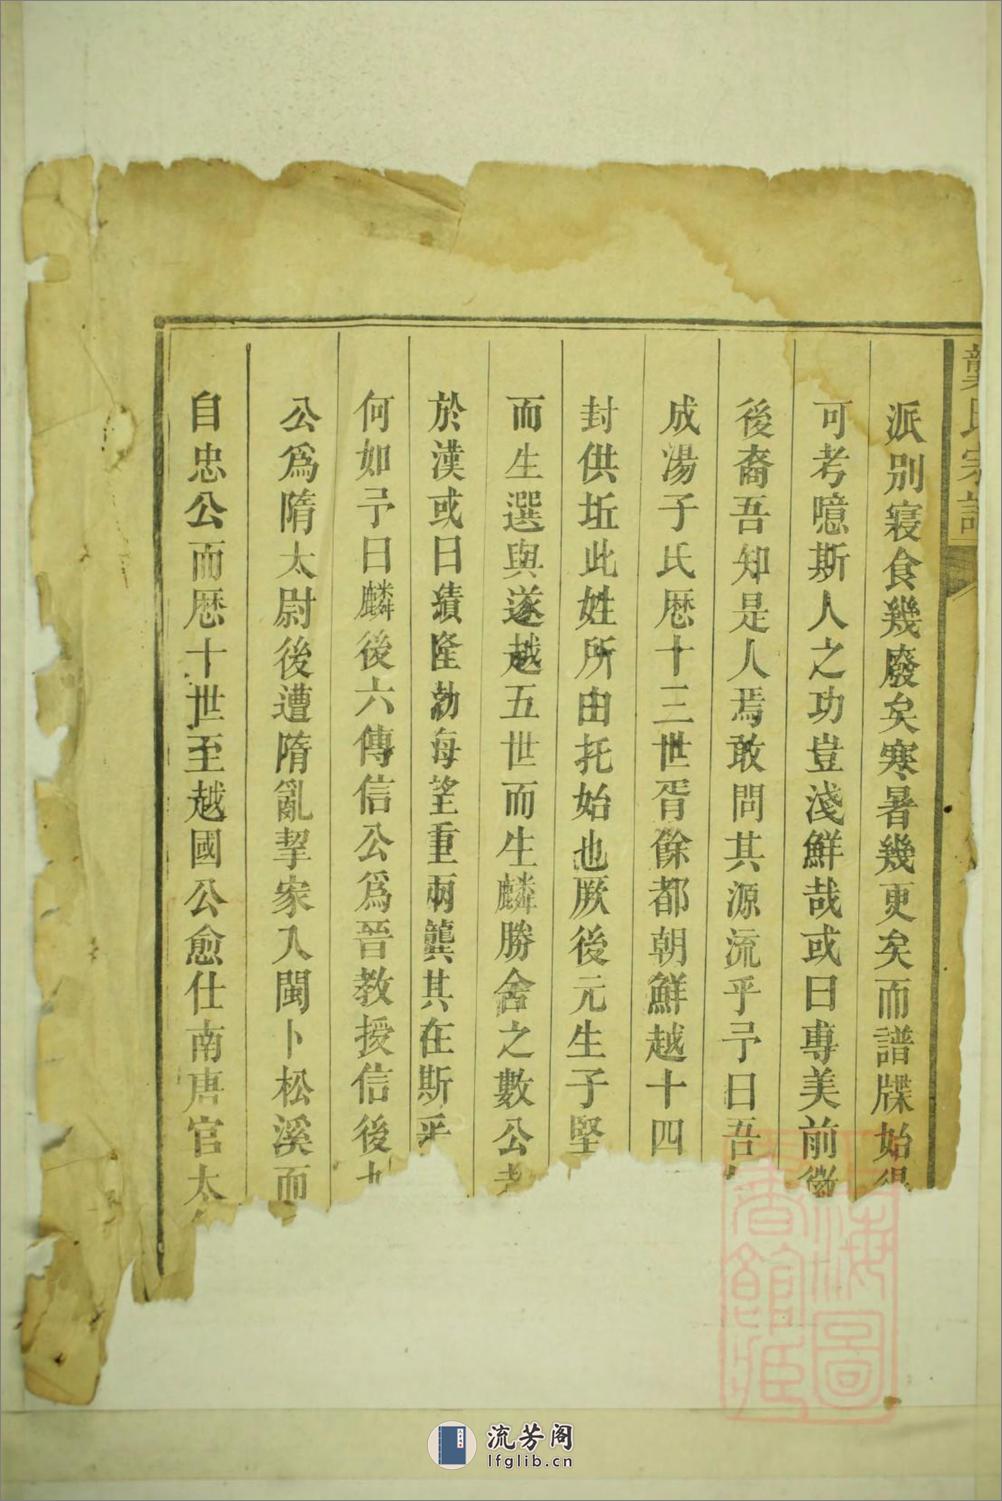 龔氏宗譜
派別寢食幾廢矣寒暑幾更矣而譜牒始得
可考噫斯人之功豈淺鮮哉或曰專美前徽
後裔吾知是人焉敢問其源流乎予曰吾
成湯子氏歴十三世胥餘都朝鮮越十四
封供坵此姓所由托始也厥後元生子堅
而生選與遂越五世而生麟勝舍之數公者
於漢或曰績隆勃海望重兩龔其在斯乎
何如予曰麟後六傳信公爲晉教授信後九
公爲隋太尉後遭隋亂挈家入閩卜松溪而
自忠公而歴十世至越國公愈仕南唐官太
上海圖書館藏
流芳阁
lfglib.cn